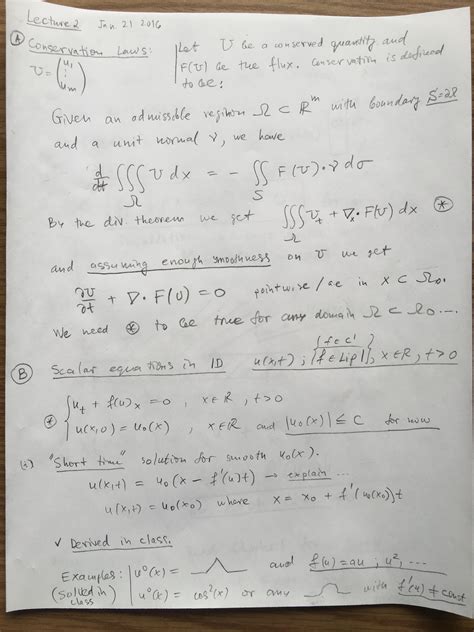 Lecture 2 Jan 21 2016
(A) Conservation Laws: | Let U be a conserved quantity and
U = (u₁ ⋮ uₘ) | F(U) be the flux. Conservation is defined
to be:
Given an admissible region Ω ⊂ ℝᵐ with boundary S=∂Ω
and a unit normal ν, we have
d/dt ∭_Ω U dx = - ∬_S F(U)·ν dσ
By the div. theorem we get ∭_Ω U_t + ∇ₓ·F(U) dx (*)
and assuming enough smoothness on U we get
∂U/∂t + ∇·F(U) = 0 pointwise/ae in x ⊂ Ω₀.
We need (*) to be true for any domain Ω ⊂ Ω₀ ....
(B) Scalar equations in 1D u(x,t); {f∈C¹ / f∈Lip}, x∈ℝ, t>0
(*) { u_t + f(u)_x = 0 , x∈ℝ, t>0
u(x,0) = u₀(x) , x∈ℝ, and |u₀(x)| ≤ C for now
(i) "Short time" solution for smooth u₀(x).
u(x,t) = u₀(x - f'(u)t) → explain ...
u(x,t) = u₀(x₀) where x = x₀ + f'(u₀(x₀))t
✓ Derived in class.
Examples: | u⁰(x) = and f(u)=au ; u², ...
(Solved in class) | u⁰(x) = cos²(x) or any with f'(u) ≠ const